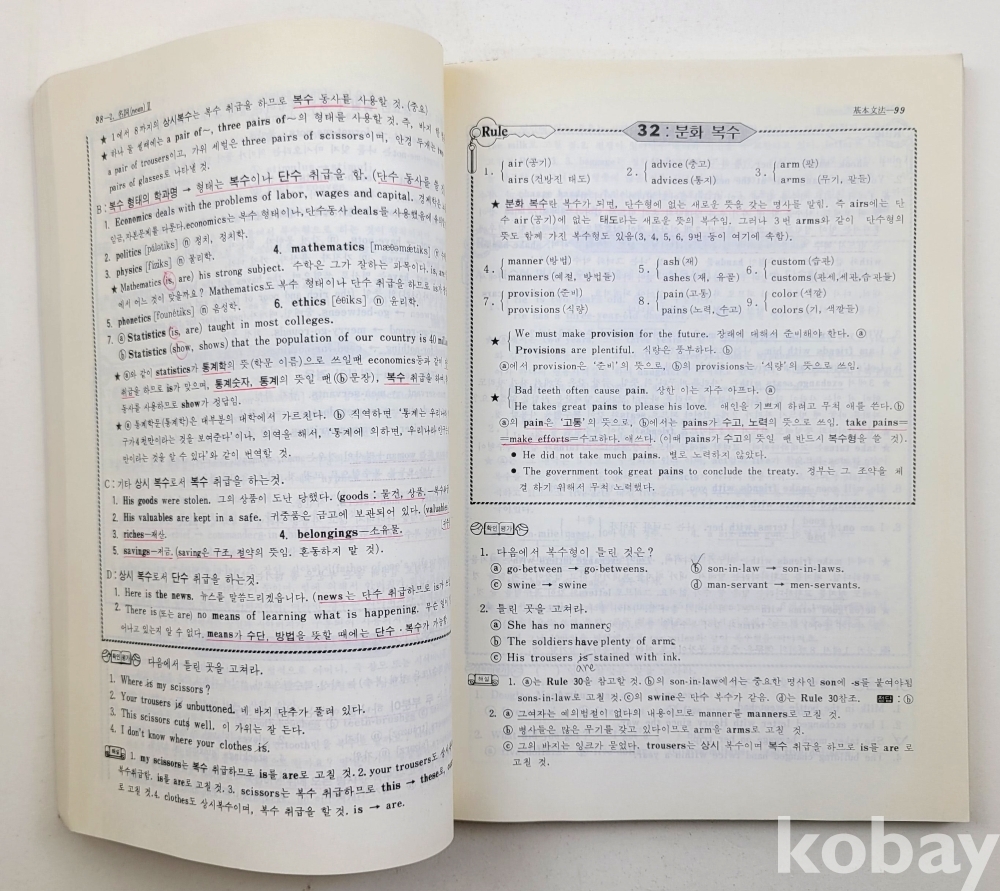 98—2. 名詞(noun) Ⅱ
★ 1에서 8까지의 상시복수는 복수 취급을 하므로 복수 동사를 사용할 것. (중요)
★ 하나 둘 셀때에는 a pair of～, three pairs of～의 형태를 사용할 것. 즉, 바지
a pair of trousers이고, 가위 세벌은 three pairs of scissors이며, 안경 두개는 two
pairs of glasses로 나타낼 것.
B : 복수 형태의 학과명 → 형태는 복수이나 단수 취급을 함. (단수 동사를
1. Economics deals with the problems of labor, wages and capital. 경제학은
임금, 자본문제를 다룬다. economics는 복수 형태이나, 단수동사 deals를 사용했음에
2. politics [pálətiks] ⓝ 정치, 정치학.
3. physics [fíziks] ⓝ 물리학.
4. mathematics [mæθəmǽtiks] ⓝ
★ Mathematics (is, are) his strong subject. 수학은 그가 잘하는 과목이다. (is, are)
에서 어느 것이 맞을까요? Mathematics도 복수 형태이나 단수 취급을 하므로 is가
5. phonetics [founétiks] ⓝ 음성학.
6. ethics [éθiks] ⓝ 윤리학.
7. ⓐ Statistics (is, are) taught in most colleges.
ⓑ Statistics (show, shows) that the population of our country is 40
★ ⓐ와 같이 statistics가 통계학의 뜻(학문 이름)으로 쓰일땐 economics등과 같이
취급을 하므로 is가 맞으며, 통계숫자, 통계의 뜻일 땐(ⓑ문장), 복수 취급을 하여
동사를 사용하므로 show가 정답임.
★ ⓐ 통계학문(통계학)은 대부분의 대학에서 가르친다. ⓑ 직역하면 '통계는 우리나라
구가 4천만이라는 것을 보여준다' 이나, 의역을 해서, '통계에 의하면, 우리나라 인구는
만이라는 것을 알 수 있다'와 같이 번역할 것.
C : 기타 상시 복수로서 복수 취급을 하는것.
1. His goods were stolen. 그의 상품이 도난 당했다. (goods : 물건, 상품.
2. His valuables are kept in a safe. 귀중품은 금고에 보관되어 있다. (valuables
3. riches—재산.
4. belongings—소유물.
5. savings—저금. (saving은 구조, 절약의 뜻임. 혼동하지 말 것).
D : 상시 복수로서 단수 취급을 하는것.
1. Here is the news. 뉴스를 말씀드리겠읍니다. (news는 단수 취급하므로 is가
2. There is (또는 are) no means of learning what is happening. 무슨 일이
어나고 있는지 알 수 없다. means가 수단, 방법을 뜻할 때에는 단수·복수가 가능
확인평가 다음에서 틀린 곳을 고쳐라.
1. Where is my scissors?
2. Your trousers is unbuttoned. 네 바지 단추가 풀려 있다.
3. This scissors cuts well. 이 가위는 잘 든다.
4. I don't know where your clothes is.
해설 1. my scissors는 복수 취급하므로 is를 are로 고칠 것. 2. your trousers도 상시
복수취급함. is를 are로 고칠 것. 3. scissors는 복수 취급하므로 this → these로,
로 고칠 것. 4. clothes도 상시복수이며, 복수 취급을 할 것. is → are.
基本文法—99
Rule 32 : 분화 복수
1. air (공기) 2. advice (충고) 3. arm (팔)
airs (건방진 태도) advices (통지) arms (무기, 팔들)
★ 분화 복수란 복수가 되면, 단수형에 없는 새로운 뜻을 갖는 명사를 말함. 즉 airs에는 단
수 air(공기)에 없는 태도라는 새로운 뜻의 복수임. 그러나 3번 arms와 같이 단수형의
뜻도 함께 가진 복수형도 있음 (3, 4, 5, 6, 9번 등이 여기에 속함).
4. manner (방법) 5. ash (재) 6. custom (습관)
manners (예절, 방법들) ashes (재, 유골) customs (관세, 세관, 습관들)
7. provision (준비) 8. pain (고통) 9. color (색깔)
provisions (식량) pains (노력, 수고) colors (기, 색깔들)
★ We must make provision for the future. 장래에 대해서 준비해야 한다. ⓐ
Provisions are plentiful. 식량은 풍부하다. ⓑ
ⓐ에서 provision은 '준비'의 뜻으로, ⓑ의 provisions는 '식량'의 뜻으로 쓰임.
★ Bad teeth often cause pain. 상한 이는 자주 아프다. ⓐ
He takes great pains to please his love. 애인을 기쁘게 하려고 무척 애를 쓴다. ⓑ
ⓐ의 pain은 '고통'의 뜻으로, ⓑ에서는 pains가 수고, 노력의 뜻으로 쓰임. take pains=
=make efforts=수고하다. 애쓰다. (이때 pains가 수고의 뜻일 땐 반드시 복수형을 쓸 것).
● He did not take much pains. 별로 노력하지 않았다.
● The government took great pains to conclude the treaty. 정부는 그 조약을 체
결 하기 위해서 무척 노력했다.
확인평가
1. 다음에서 복수형이 틀린 것은?
ⓐ go-between → go-betweens. ⓑ son-in-law → son-in-laws.
ⓒ swine → swine ⓓ man-servant → men-servants.
2. 틀린 곳을 고쳐라.
ⓐ She has no manner.
ⓑ The soldiers have plenty of arm.
ⓒ His trousers is stained with ink.
are
해설 1. ⓐ는 Rule 30을 참고할 것. ⓑ의 son-in-law에서는 중요한 명사인 son에 -s를 붙여야됨
sons-in-law로 고칠 것. ⓒ의 swine은 단수 복수가 같음. ⓓ는 Rule 30참조. 정답 : ⓑ
2. ⓐ 그여자는 예의범절이 없다의 내용이므로 manner를 manners로 고칠 것.
ⓑ 병사들은 많은 무기를 갖고 있다이므로 arm을 arms로 고칠 것.
ⓒ 그의 바지는 잉크가 묻었다. trousers는 상시 복수이며 복수 취급을 하므로 is를 are 로
고칠 것.
kobay